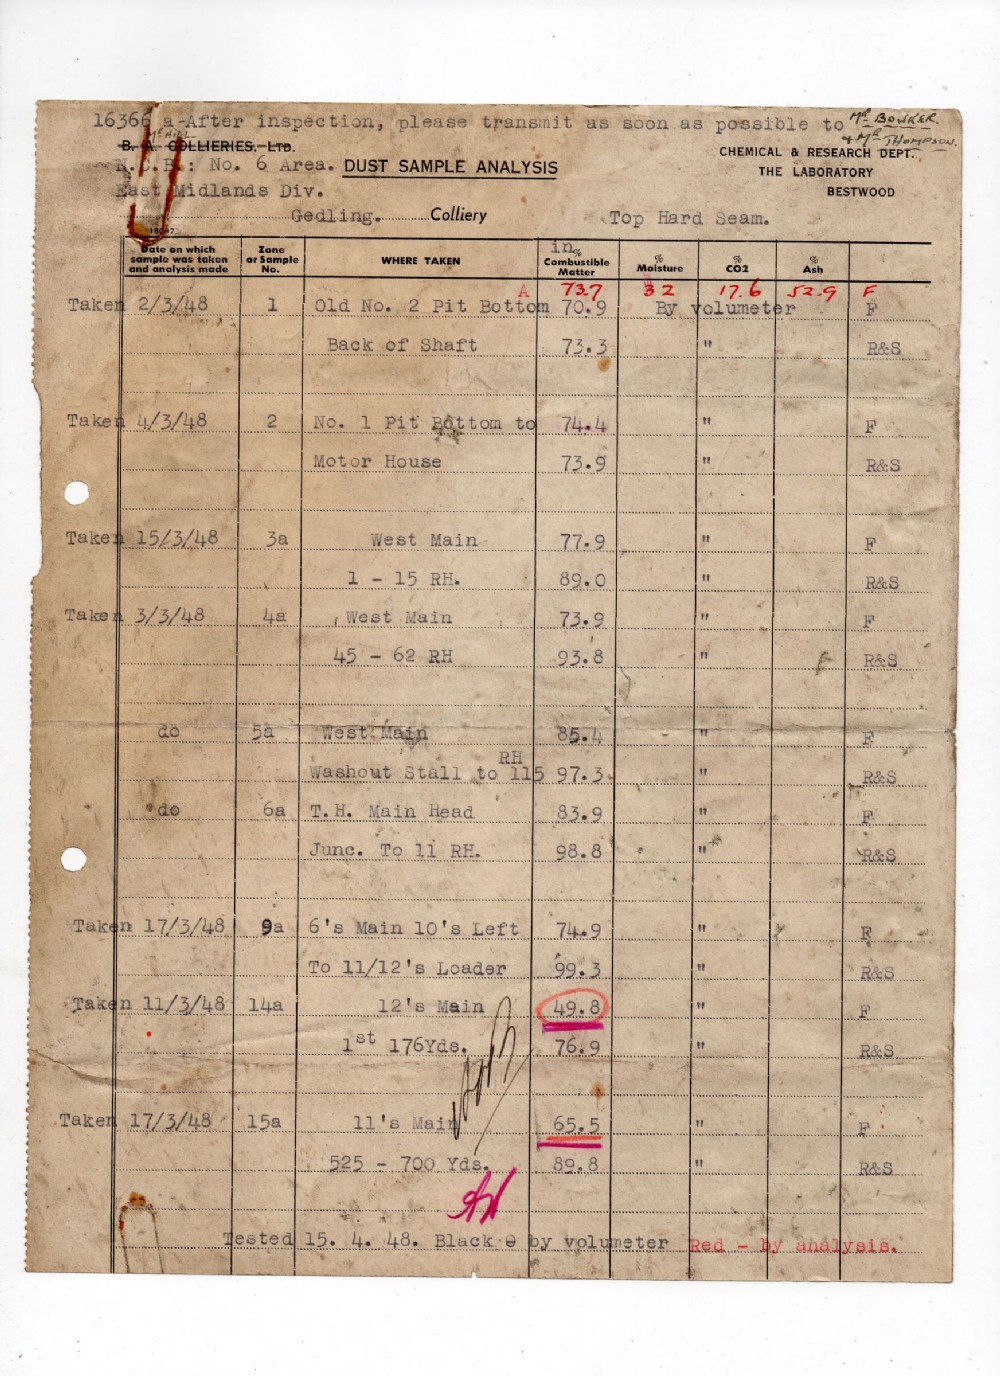 16366 a-After inspection, please transmit as soon as possible to Mr BOWKER.
& Mr THOMPSON.
B. A. COLLIERIES, LTD.
N.C.B.: No. 6 Area. DUST SAMPLE ANALYSIS
East Midlands Div.
CHEMICAL & RESEARCH DEPT.
THE LABORATORY
BESTWOOD
Gedling. Colliery Top Hard Seam.
Date on which sample was taken and analysis made Zone or Sample No. WHERE TAKEN in % Combustible Matter % Moisture % CO2 % Ash
A 73.7 3.2 17.6 52.9 F
Taken 2/3/48 1 Old No. 2 Pit Bottom 70.9 By volumeter F
Back of Shaft 73.3 " R&S
Taken 4/3/48 2 No. 1 Pit Bottom to 74.4 " F
Motor House 73.9 " R&S
Taken 15/3/48 3a West Main 77.9 " F
1 - 15 RH. 89.0 " R&S
Taken 3/3/48 4a West Main 73.9 " F
45 - 62 RH 93.8 " R&S
do 5a West Main 85.4 " F
RH
Washout Stall to 115 97.3 " R&S
do 6a T.H. Main Head 83.9 " F
Junc. To 11 RH. 98.8 " R&S
Taken 17/3/48 9a 6's Main 10's Left 74.9 " F
To 11/12's Loader 99.3 " R&S
Taken 11/3/48 14a 12's Main 49.8 " F
1st 176Yds. 76.9 " R&S
Taken 17/3/48 15a 11's Main 65.5 " F
525 - 700 Yds. 89.8 " R&S
Tested 15. 4. 48. Black by volumeter Red - by analysis.